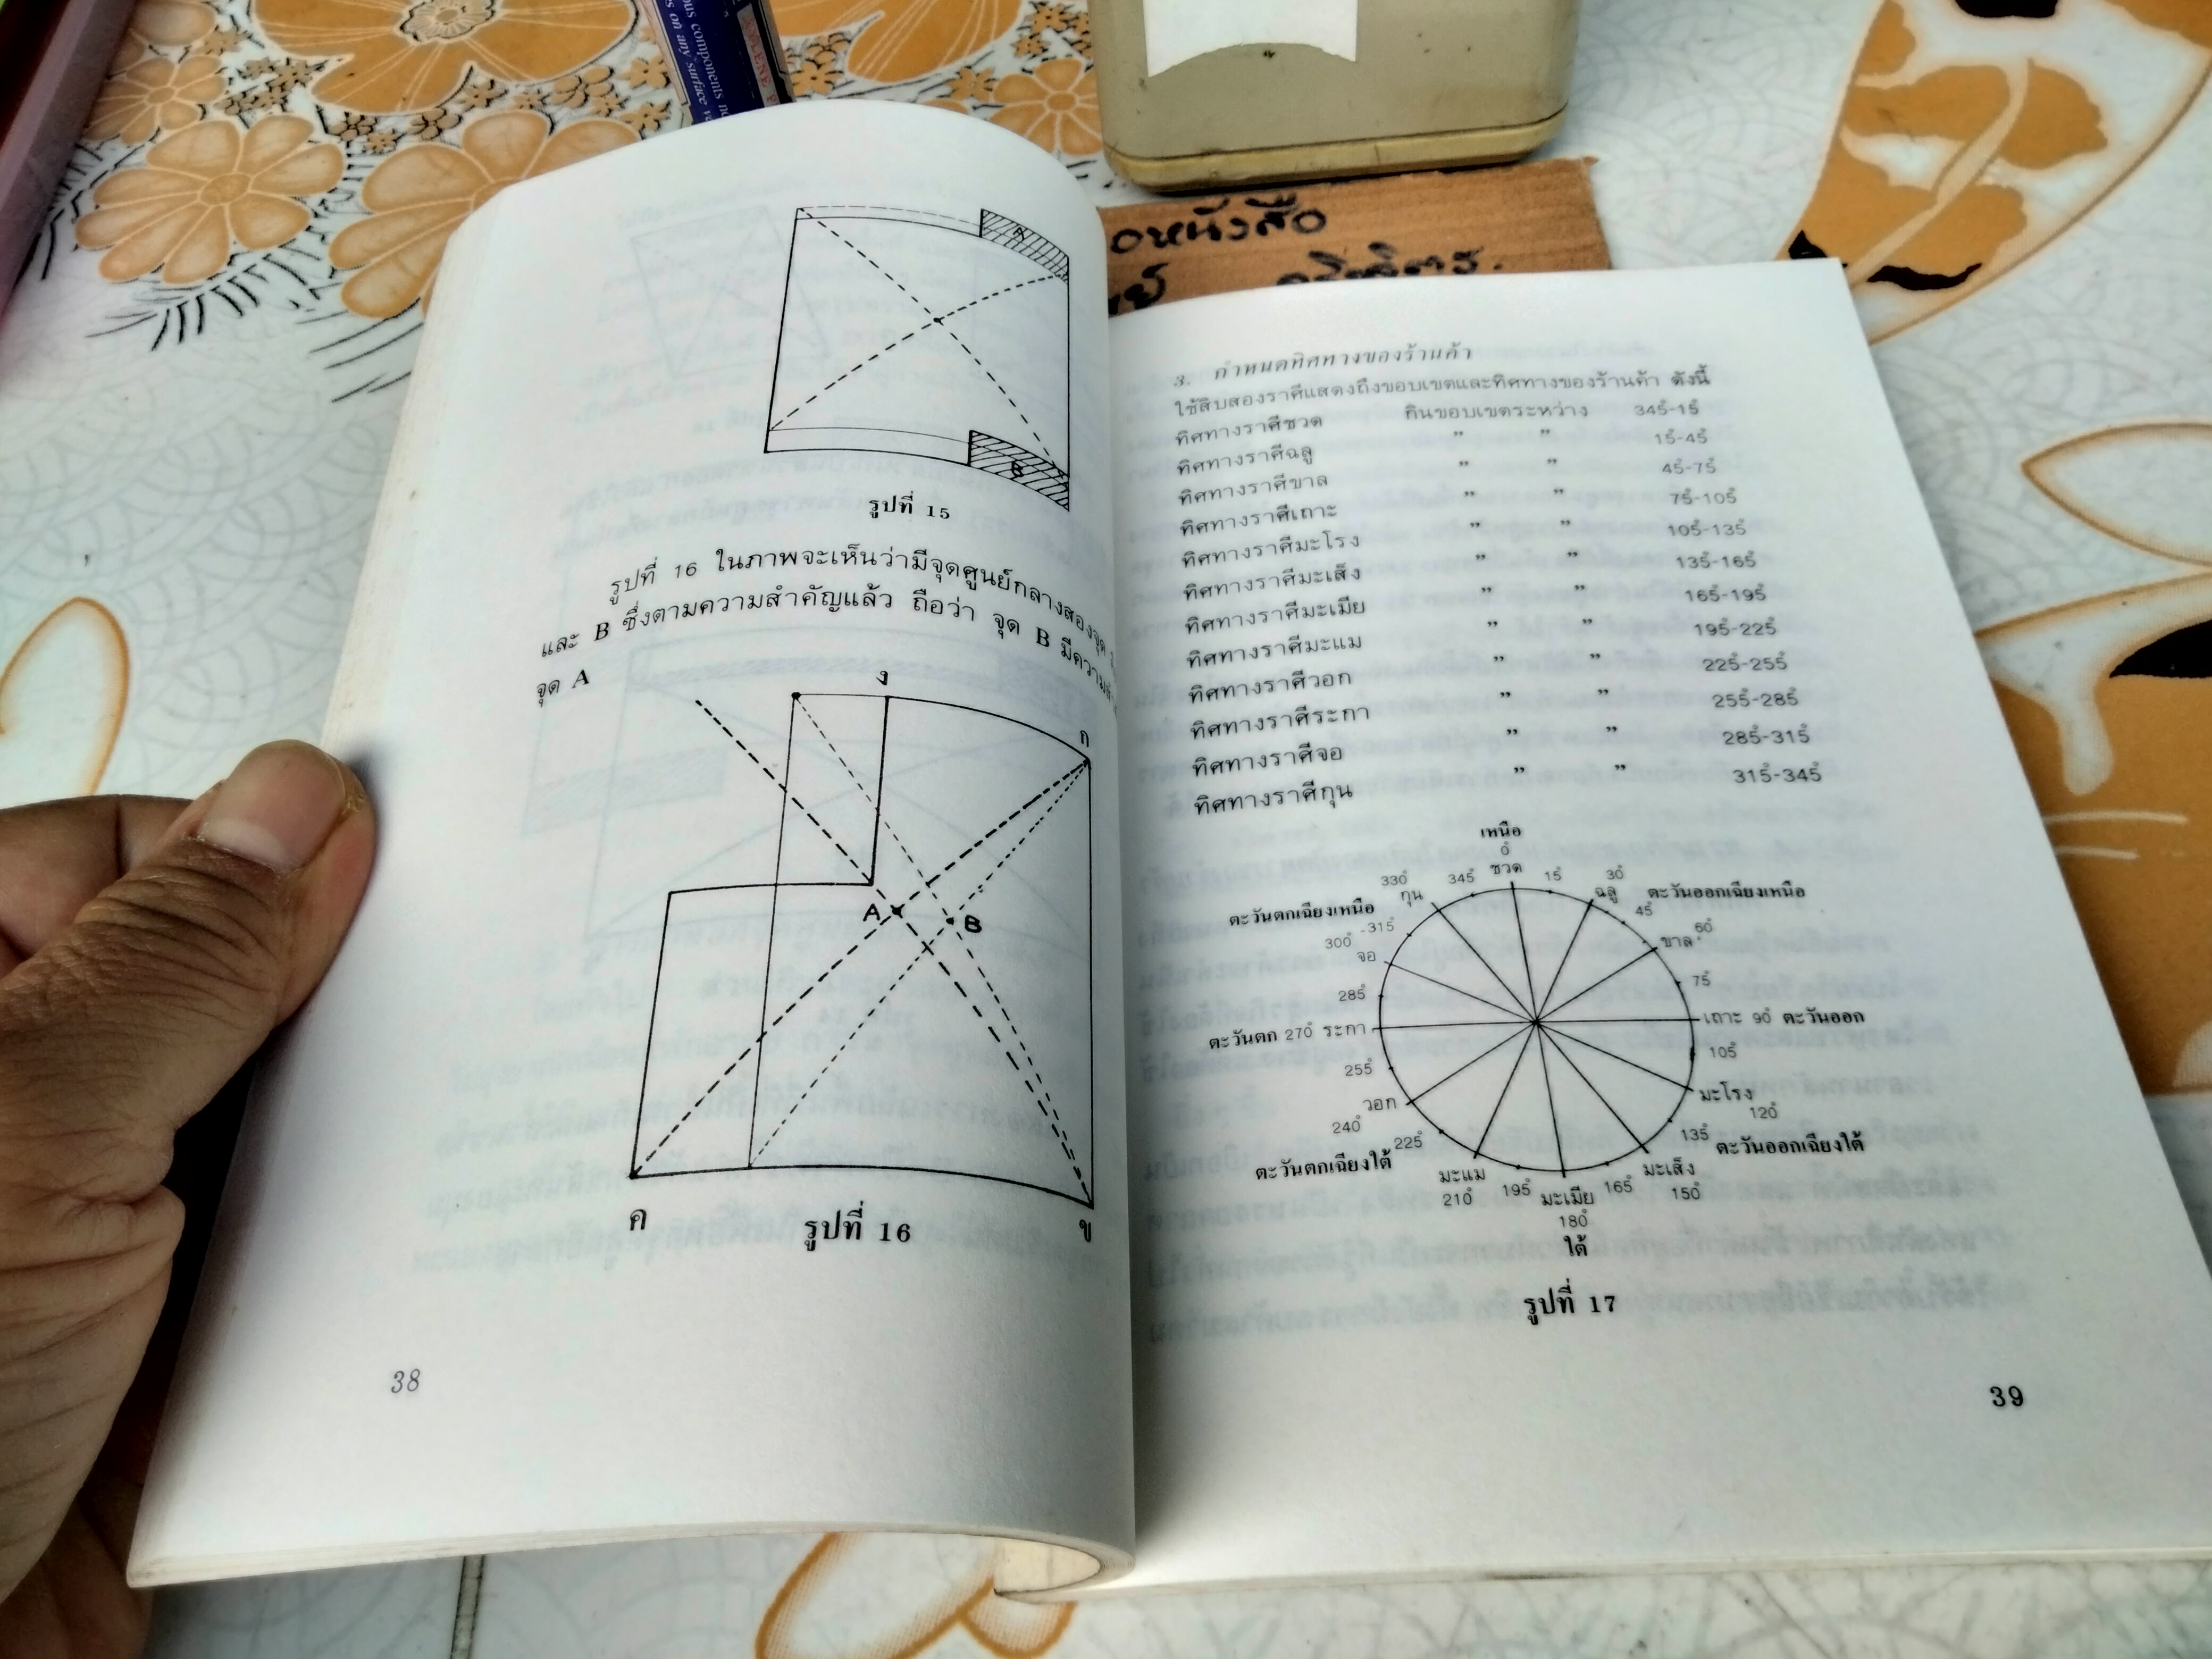 ous components
s on any surface
หนังสือ
A
B
รูปที่ 15
รูปที่ 16 ในภาพจะเห็นว่ามีจุดศูนย์กลางสองจุด
และ B ซึ่งตามความสำคัญแล้ว ถือว่า จุด B มีความ
จุด A
ง
ก
A
B
ค
ข
รูปที่ 16
38
3. กำหนดทิศทางของร้านค้า
ใช้สิบสองราศีแสดงถึงขอบเขตและทิศทางของร้านค้า ดังนี้
ทิศทางราศีชวด กินขอบเขตระหว่าง 345°-15°
ทิศทางราศีฉลู " " 15°-45°
ทิศทางราศีขาล " " 45°-75°
ทิศทางราศีเถาะ " " 75°-105°
ทิศทางราศีมะโรง " " 105°-135°
ทิศทางราศีมะเส็ง " " 135°-165°
ทิศทางราศีมะเมีย " " 165°-195°
ทิศทางราศีมะแม " " 195°-225°
ทิศทางราศีวอก " " 225°-255°
ทิศทางราศีระกา " " 255°-285°
ทิศทางราศีจอ " " 285°-315°
ทิศทางราศีกุน " " 315°-345°
เหนือ
0°
ชวด
330° 345° 15° 30°
กุน ฉลู
ตะวันตกเฉียงเหนือ 45° ตะวันออกเฉียงเหนือ
300° -315° ขาล 60°
จอ
285° 75°
ตะวันตก 270° ระกา เถาะ 90° ตะวันออก
255° 105°
วอก มะโรง
240° 120°
225° 135°
ตะวันตกเฉียงใต้ ตะวันออกเฉียงใต้
มะแม มะเส็ง
210° 195° มะเมีย 165° 150°
180°
ใต้
รูปที่ 17
39